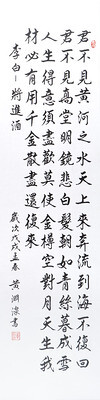 君不見黃河之水天上來奔流到海不復回
君不見高堂明鏡悲白髮朝如青絲暮成雪
人生得意須盡歡莫使金樽空對月天生我
材必有用千金散盡還復來
李白一將進酒
歲次戊戌孟春 黃淵書